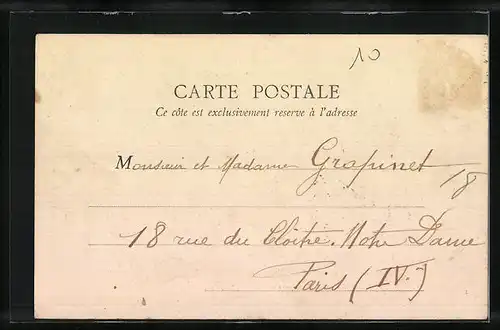 10
CARTE POSTALE
Ce côte est exclusivement reserve à l'adresse
Monsieur et Madame Grapinet
18
18 rue du Cloitre. Notre Dame
Paris (IV.)